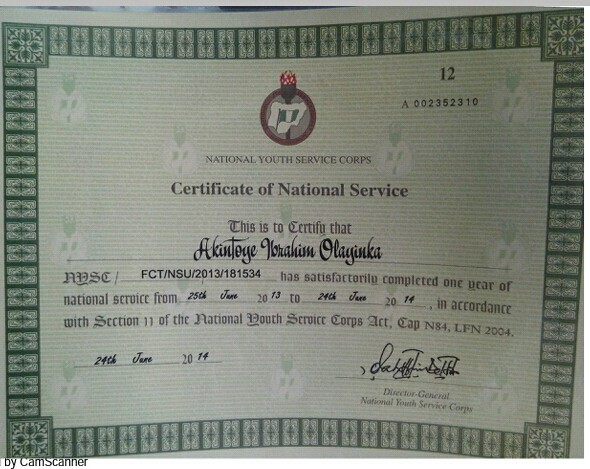 12
A 002352310
NATIONAL YOUTH SERVICE CORPS
Certificate of National Service
This is to Certify that
Akintoye Ibrahim Olayinka
NYSC / FCT/NSU/2013/181534 has satisfactorily completed one year of
national service from 25th June 2013 to 24th June 2014, in accordance
with Section 11 of the National Youth Service Corps Act, Cap N84, LFN 2004.
24th June 2014
Director-General
National Youth Service Corps
by CamScanner